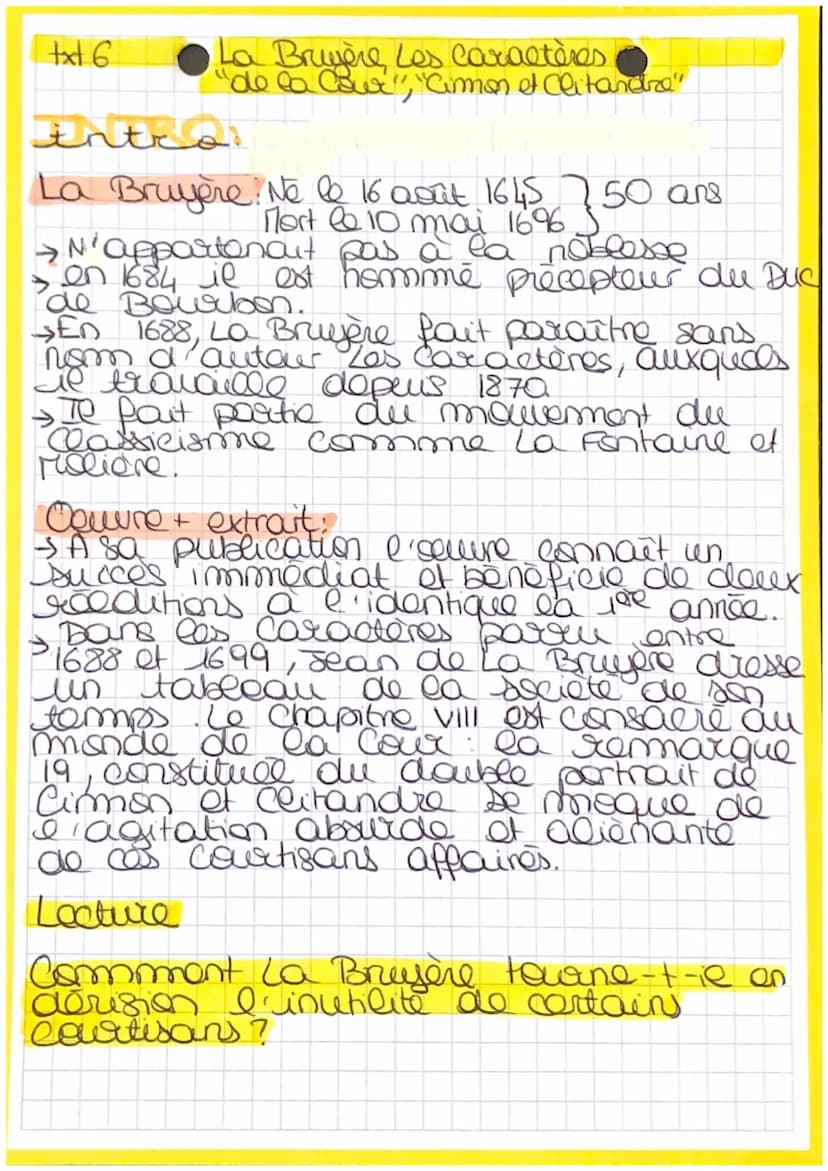 txt 6 La Bruyère, Les Caractères
"de la Cour", "Cimon et Clitandre"
INTRO:
intro:
La Bruyère: Né le 16 août 1645 } 50 ans
Mort le 10 mai 1696
→ N'appartenait pas à la noblesse
→ en 1684 il est nommé précepteur du Duc
de Bourbon.
→ En 1688, La Bruyère fait paraître sans
nom d'auteur Les Caractères, auxquels
il travaille depuis 1870
→ Il fait partie du mouvement du
Classicisme comme La Fontaine et
Molière.
Oeuvre + extrait:
→ A sa publication l'oeuvre connaît un
succès immédiat et bénéficie de deux
rééditions à l'identique la 1ère année.
→ Dans les Caractères parru entre
1688 et 1699, Jean de La Bruyère dresse
un tableau de la société de son
temps. Le Chapitre VIII est consacré au
monde de la Cour : la remarque
19, constituée du double portrait de
Cimon et Clitandre se moque de
l'agitation absurde et aliénante
de ces courtisans affairés.
Lecture
Comment La Bruyère tourne-t-il en
dérision l'inutilité de certains
courtisans ?